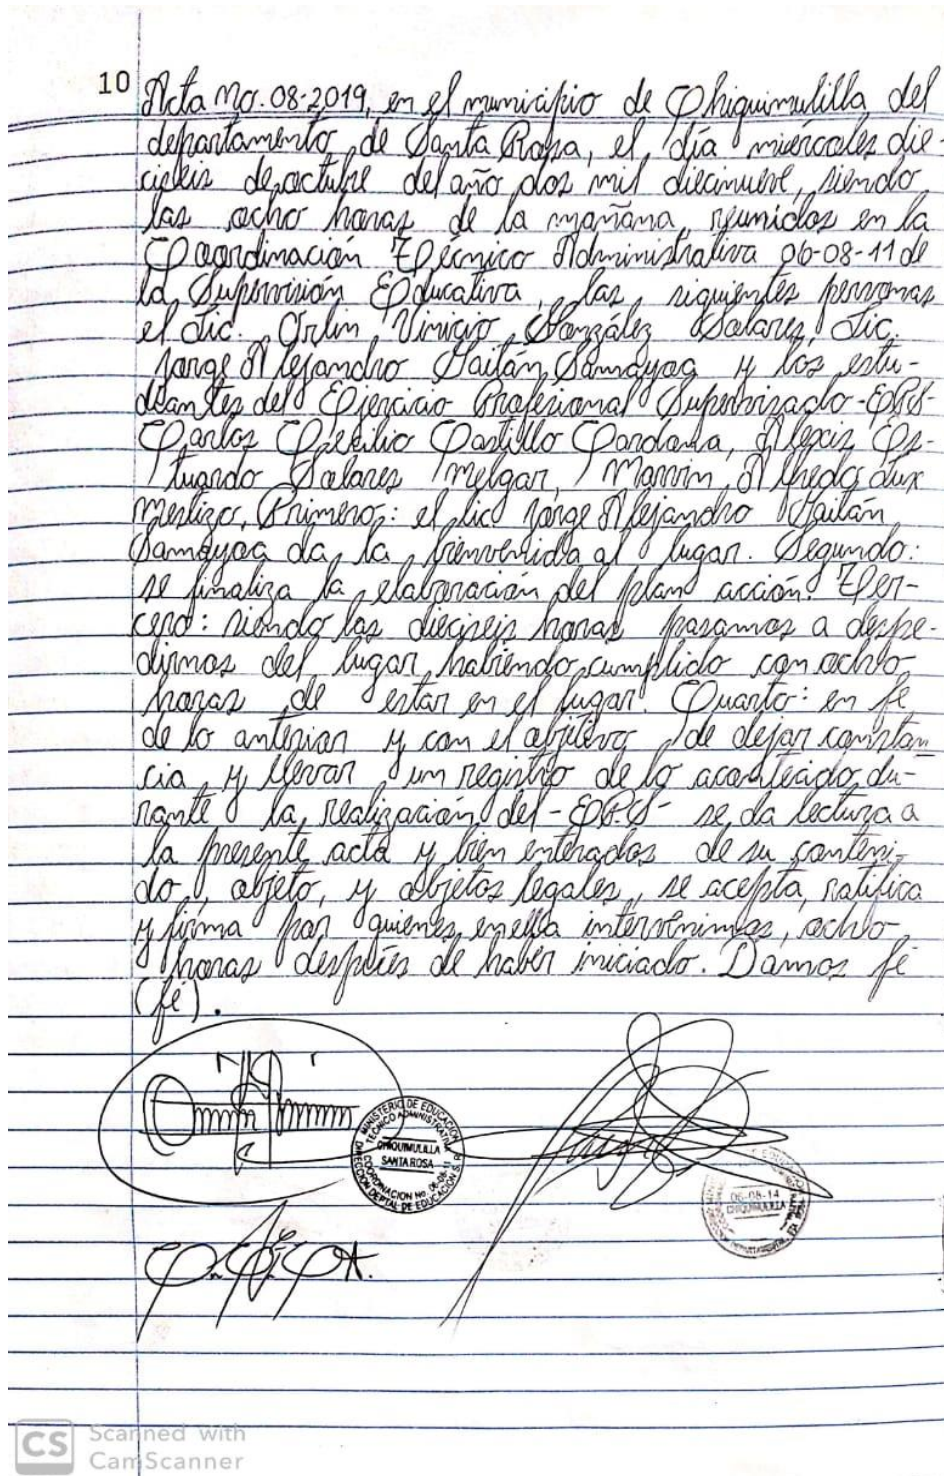 10
Acta No. 08-2019, en el municipio de Chiquimulilla del
departamento de Santa Rosa, el día miércoles die-
ciséis de octubre del año dos mil diecinueve, siendo
las ocho horas de la mañana, reunidos en la
Coordinación Técnico Administrativa 06-08-11 de
la Supervisión Educativa, las siguientes personas
el Lic. Orlin Vinicio González Solares, Lic.
Jorge Alejandro Gaitán Samayoa y los estu-
diantes del Ejercicio Profesional Supervisado -EPS-
Carlos Cecilio Castillo Cardona, Alexis Es-
tuardo Solares Melgar, Marvin Alfredo Lux
Mestizo. Primero: el lic Jorge Alejandro Gaitán
Samayoa da la bienvenida al lugar. Segundo:
se finaliza la elaboración del plan acción. Ter-
cero: siendo las dieciseis horas pasamos a despe-
dirnos del lugar, habiendo cumplido con ocho
horas de estar en el lugar. Cuarto: en fe
de lo anterior y con el objetivo de dejar constan
cia y llevar un registro de lo acontecido du-
rante la realización del -EPS- se da lectura a
la presente acta y bien enterados de su conteni-
do, objeto, y objetos legales, se acepta, ratifica
y firma por quienes en ella intervenimos, ocho
horas después de haber iniciado. Damos fe
(fé).
MINISTERIO DE EDUCACION
TECNICO ADMINISTRATIVA
CHIQUIMULILLA
SANTA ROSA
COORDINACION No. 06-08-11
DIRECCION DEPTAL DE EDUCACION S. R.
06-08-14
CHIQUIMULILLA
CS Scanned with
CamScanner